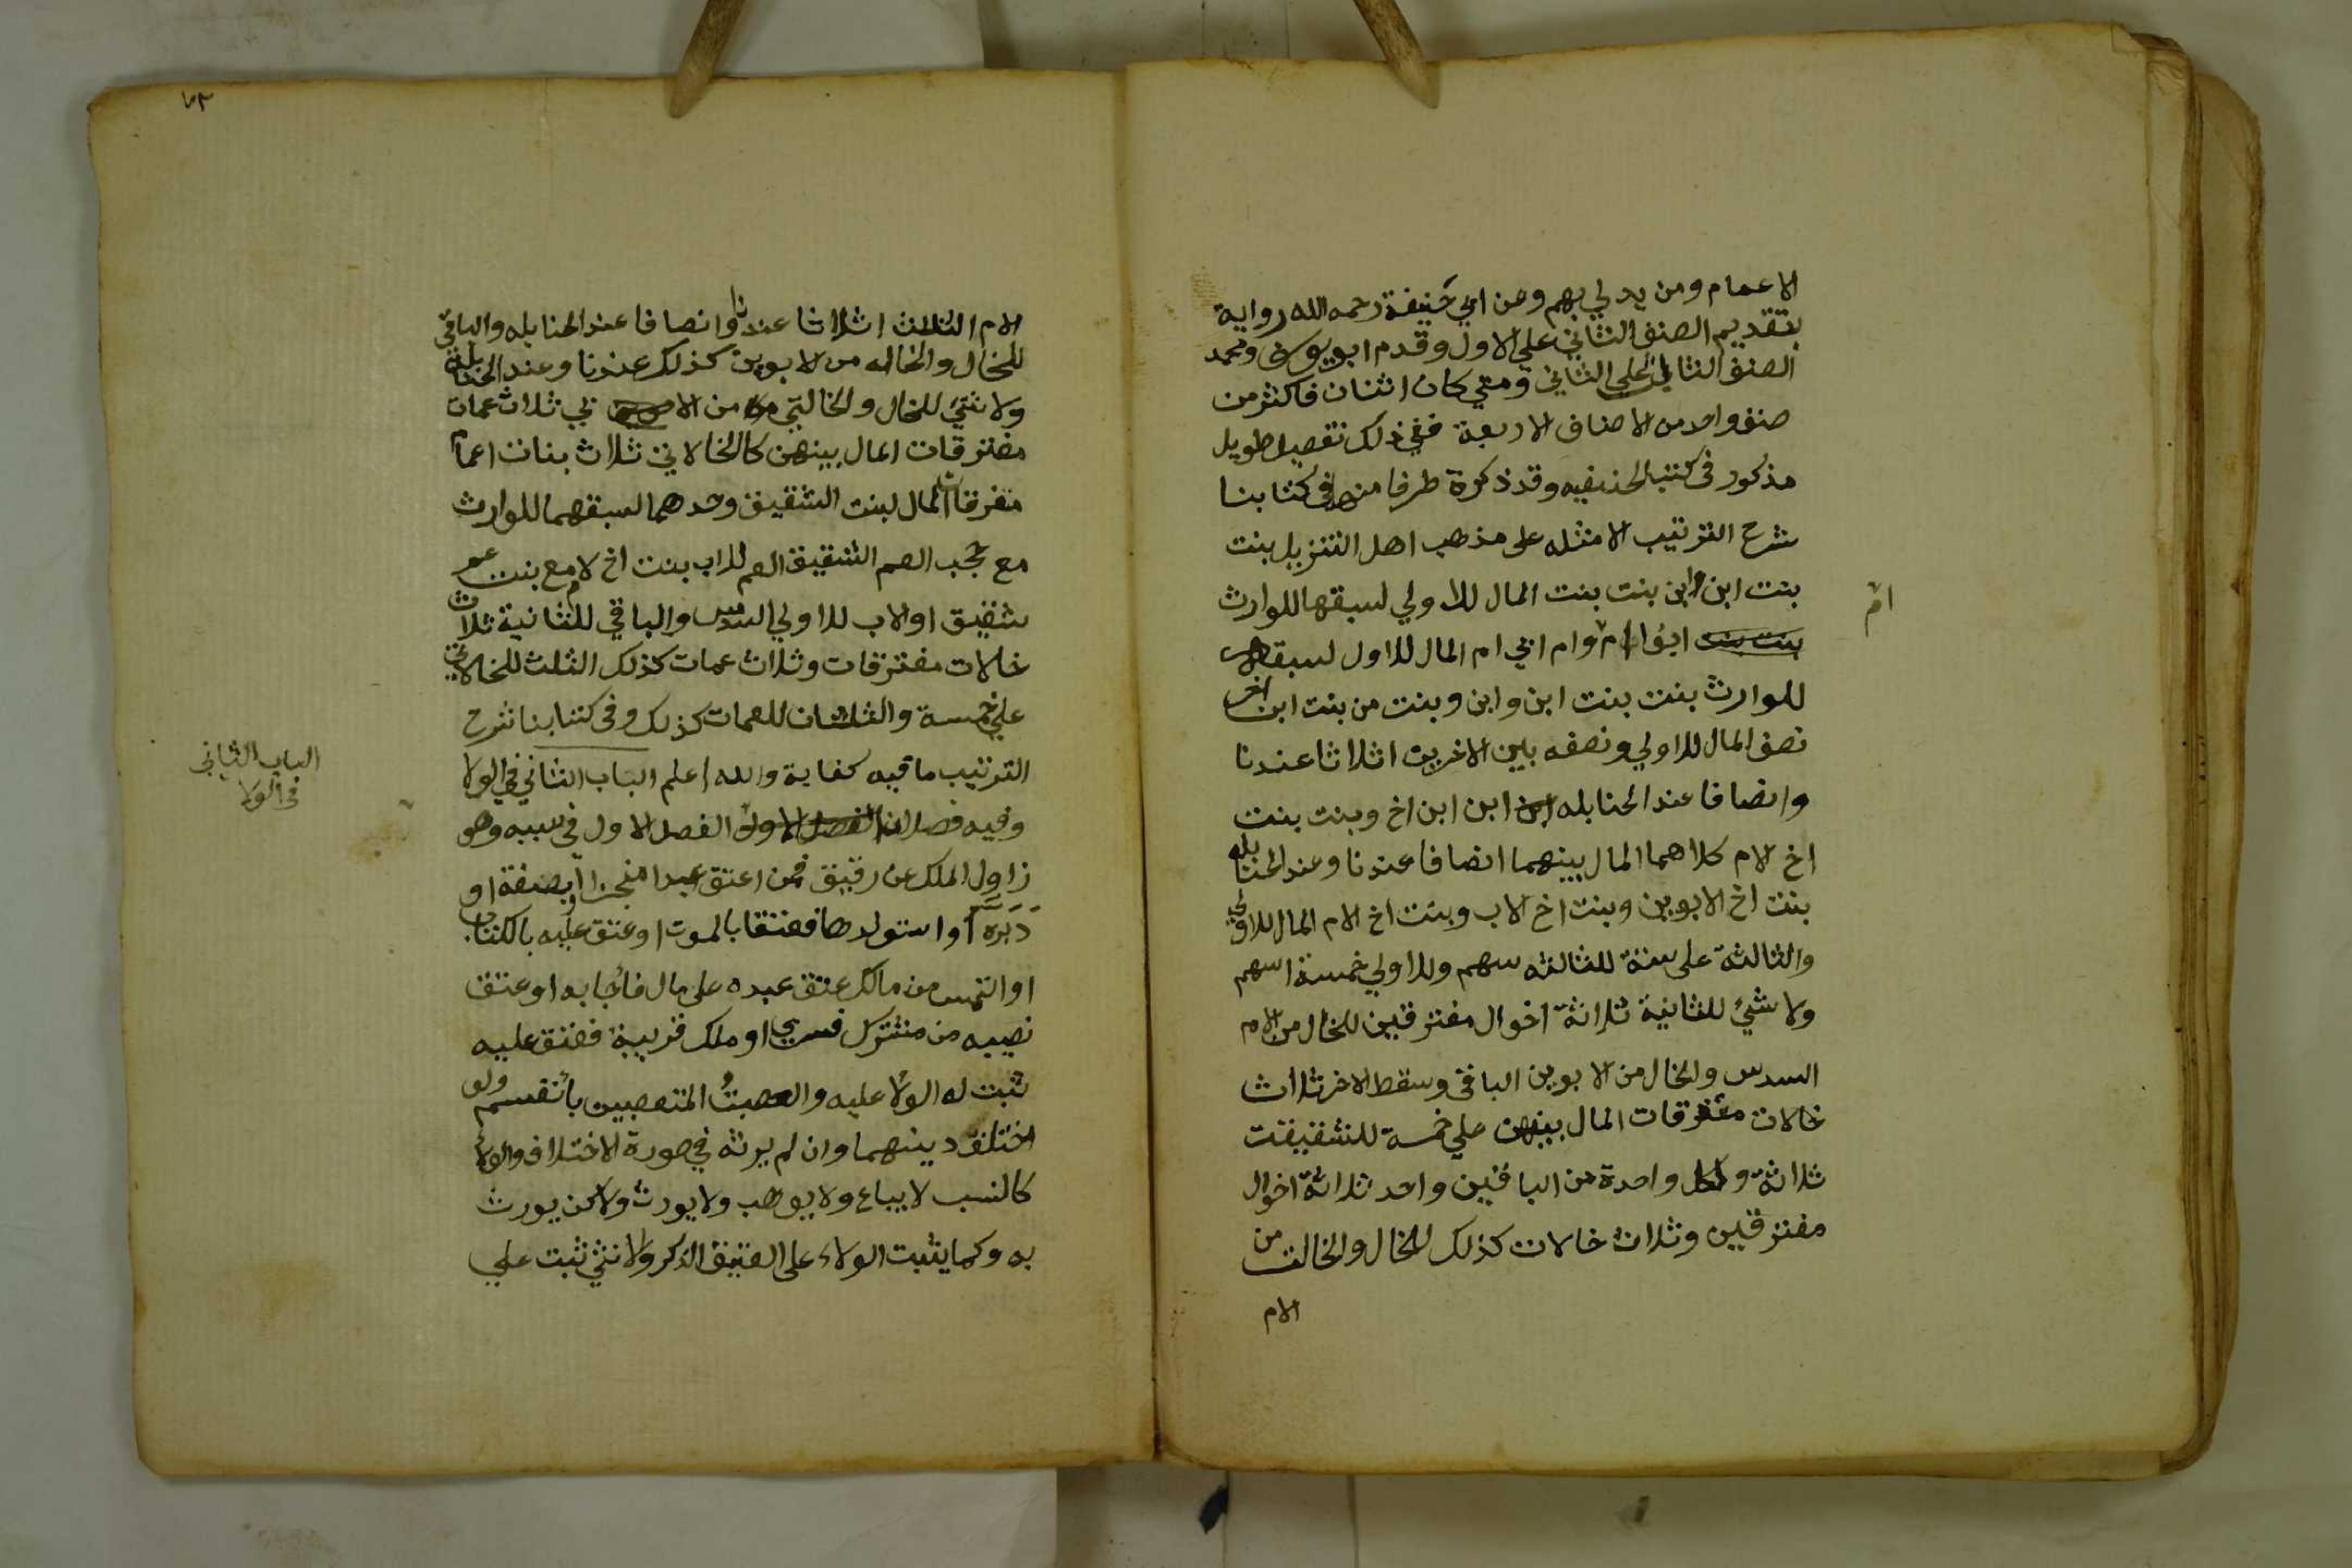 الاعمام ومن يدلي بهم وعن ابي حنيفة رحمه الله رواية
بتقديم الصنف الثاني علي الاول وقدم ابو يوسف ومحمد
الصنف الثالث علي الثاني ومتي كان اثنان فاكثر من
صنف واحد من الاصناف الاربعة ففي ذلك تفصيل طويل
مذكور في كتب الحنفيه وقد ذكرة طرفا منها في كتابنا
شرح الترتيب الامثله على مذهب اهل التنزيل بنت
بنت ابن وابن بنت بنت المال للاولي لسبقها للوارث
ام
بنت بنت ابوا ام وام ابي ام المال للاول لسبقه
للوارث بنت بنت ابن وابن وبنت من بنت ابن اخر
نصف المال للاولي ونصفه بين الاخرين اثلاثا عندنا
وانصافا عند الحنابله ابن ابن ابن اخ وبنت بنت
اخ لام كلاهما المال بينهما انصافا عندنا وعند الحنابله
بنت اخ لابوين وبنت اخ لاب وبنت اخ لام المال للاولي
والثالثة على ستة للثالثه سهم وللاولي خمسة اسهم
ولا شئ للثانية ثلاثة اخوال مفترقين للخال من الام
السدس والخال من الابوين الباقي وسقط الاخر ثلاث
خالات مفترقات المال بينهن علي خمسة للشقيقت
ثلاثة ولكل واحدة من الباقين واحد ثلاثة اخوال
مفترقين وثلاث خالات كذلك للخال والخالت من
الام
٦٣
الام الثلث اثلاثا عندنا وانصافا عند الحنابله والباقي
للخال والخاله من الابوين كذلك عندنا وعند الحنابلة
ولا شئ للخال والخالتي من الاب في ثلاث عمات
مفترقات المال بينهن كالخالات في ثلاث بنات اعمام
متفرقات المال لبنت الشقيق وحدهما لسبقهما للوارث
مع حجب العم الشقيق العم للاب بنت اخ لام مع بنت عم
شقيق او لاب للاولي السدس والباقي للثانية ثلاث
خالات مفترقات وثلاث عمات كذلك الثلث للخالات
علي خمسة والثلثان للعمات كذلك وفي كتابنا شرح
الترتيب ما فيه كفاية والله اعلم الباب الثاني في الولا
الباب الثاني
في الولا
وفيه فصلان الفصل الاول الفصل الاول في سببه وهو
زاول الملك عن رقيق فمن اعتق عبدا منجزا او بصفة او
دبره او استولدها فعتقا بالموت او عتق عليه بالكتاب
او التمس من مالك عتق عبده على مال فأجابه او عتق
نصيبه من مشترك فسري او ملك قريبة فعتق عليه
ثبت له الولا عليه والعصبت المتعصبين بأنفسهم ولو
اختلف دينهما وان لم يرثه في صورة الاختلاف والولا
كالنسب لا يباع ولا يوهب ولا يورث ولاكن يورث
به وكما يثبت الولاء على العتيق الذكر والانثي ثبت علي